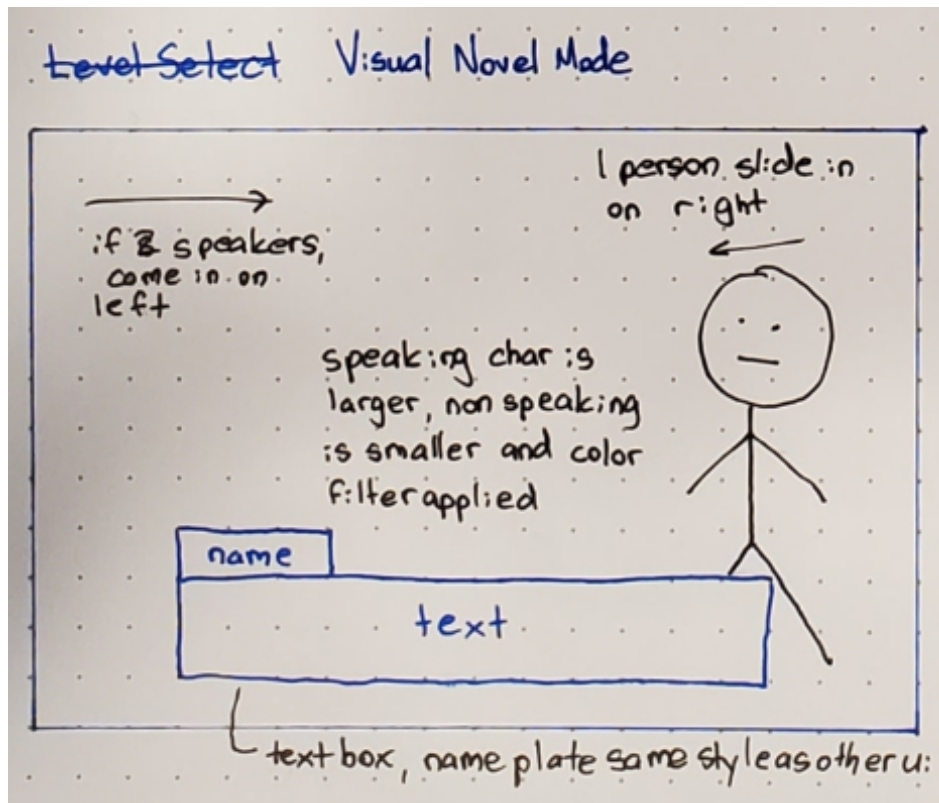 Level Select Visual Novel Mode
1 person slide in
on right
if 2 speakers,
come in on
left
speaking char is
larger, non speaking
is smaller and color
filter applied
name
text
text box, name plate same style as other ui